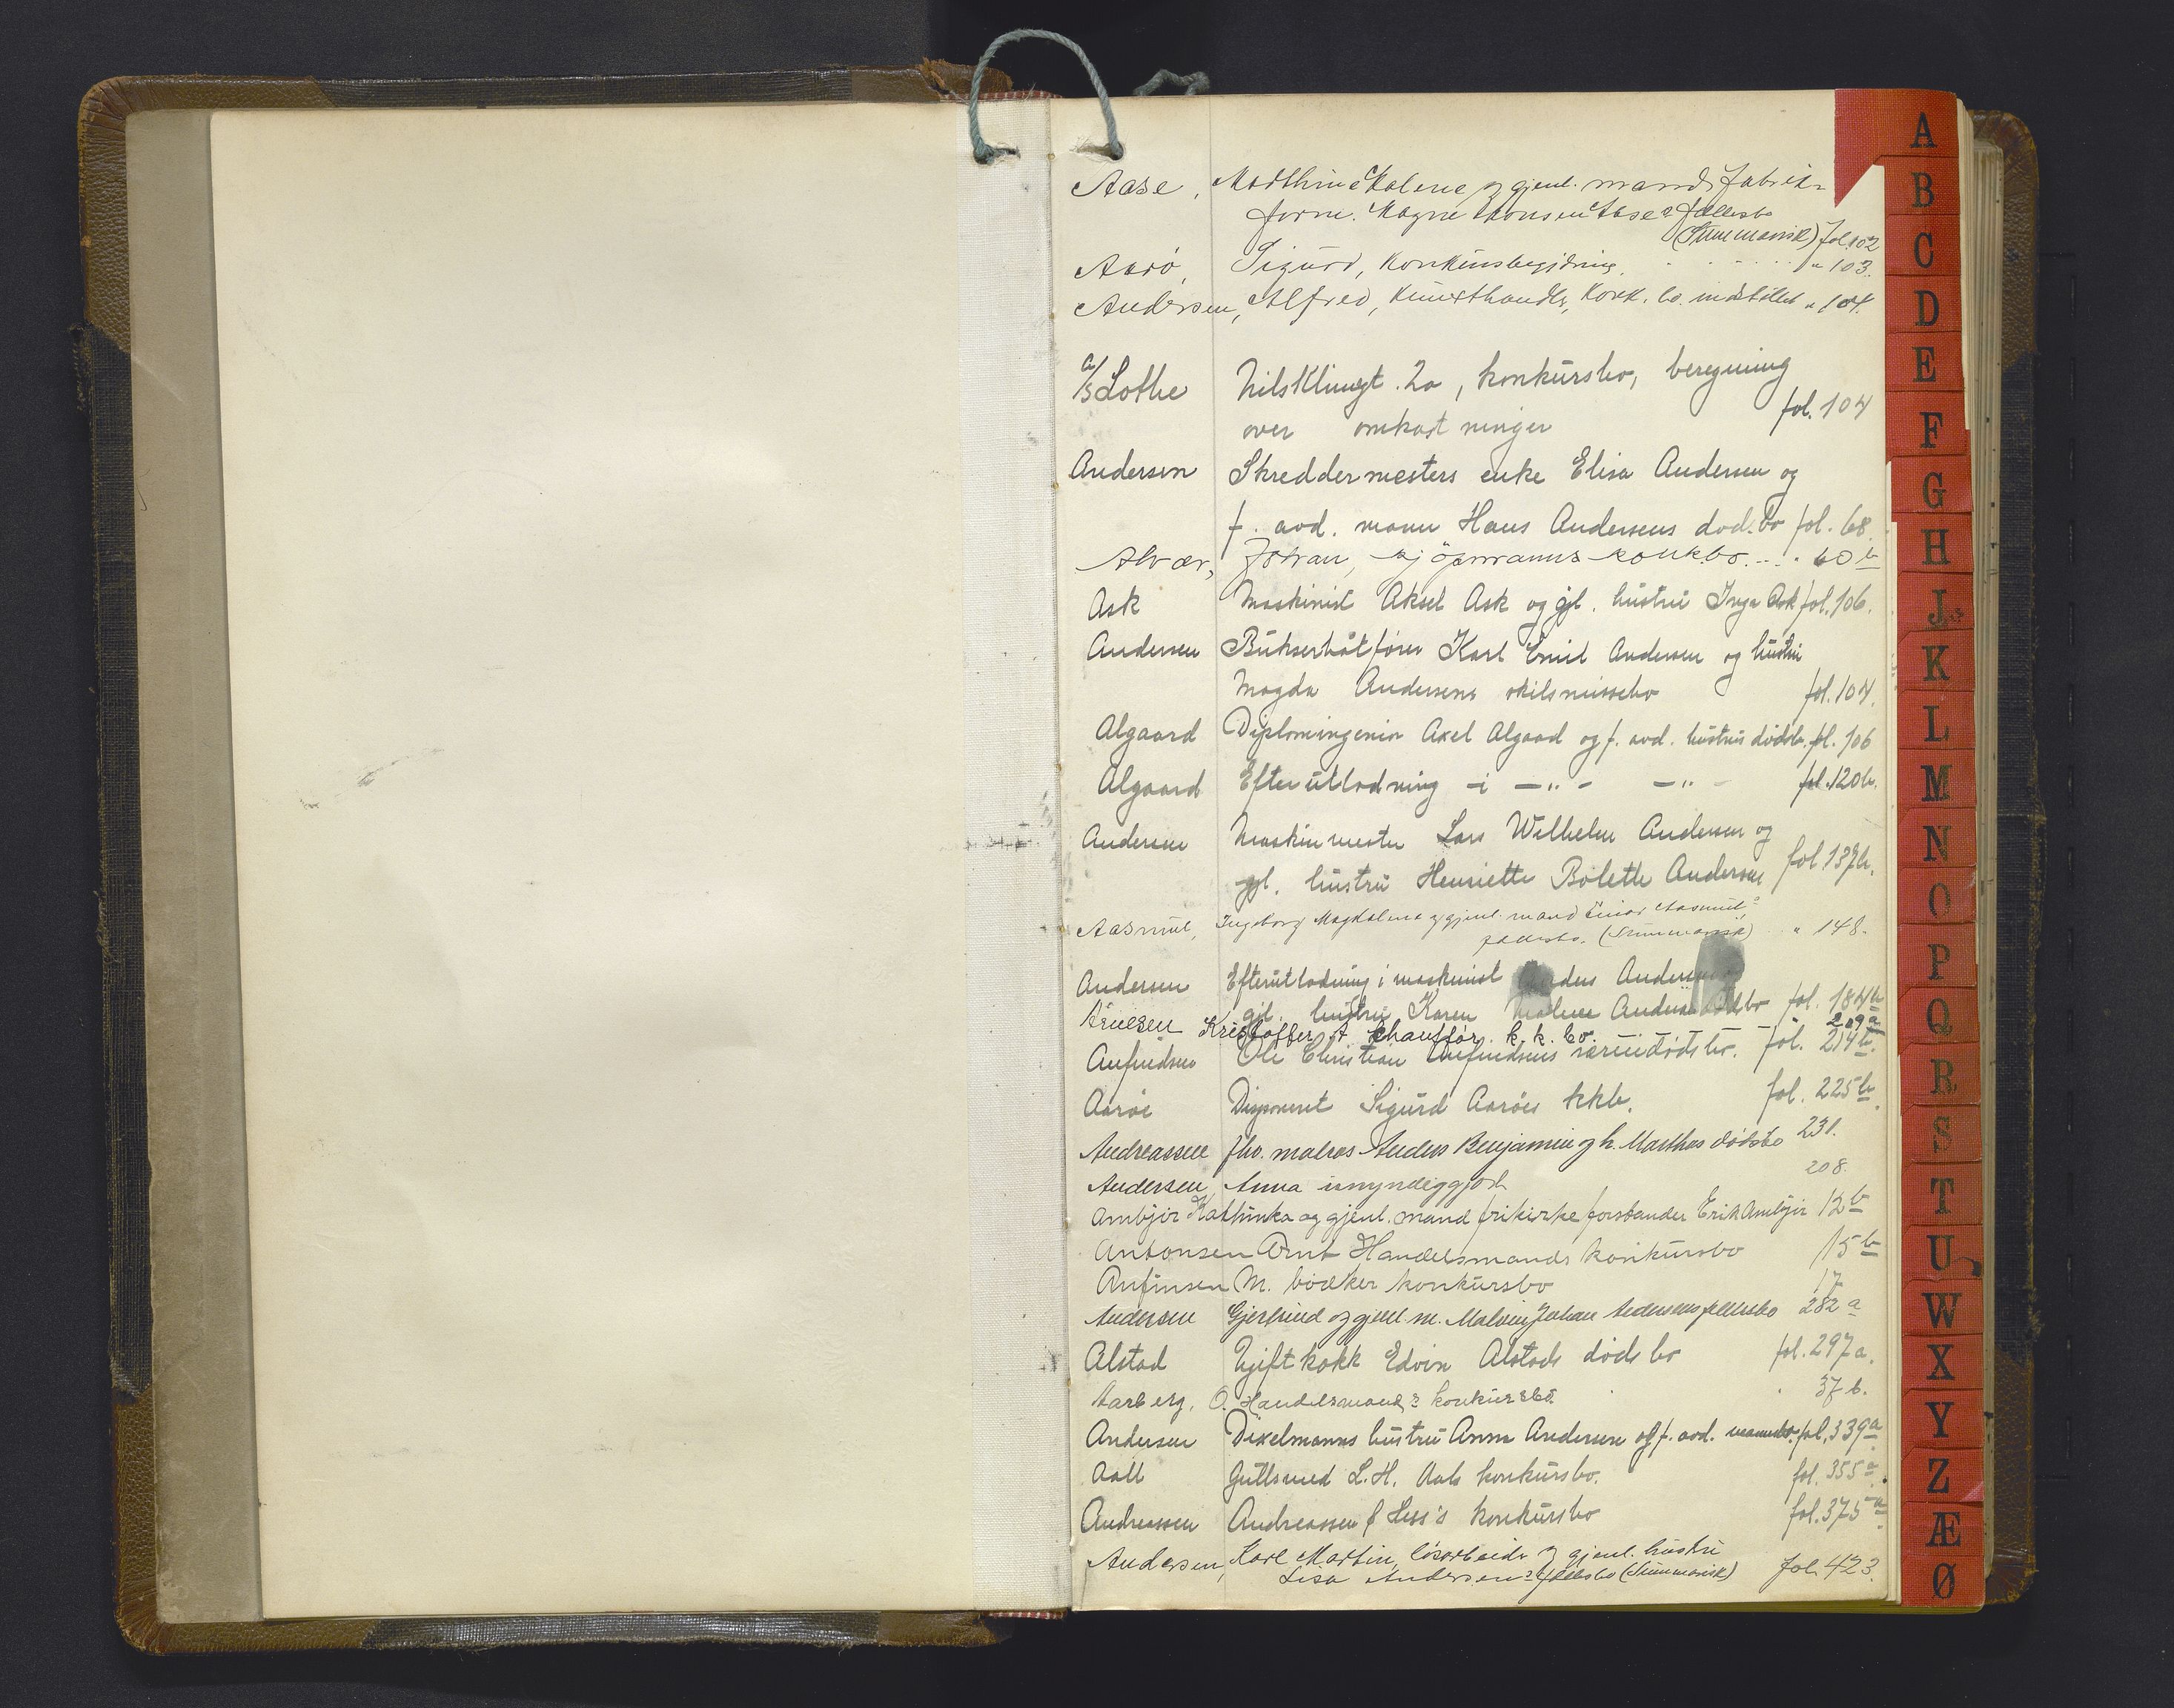 Aase, Malene og gjenl. mands fabrik-
form. Magne Monsen Aases fællesbo
(Summarisk) fol. 102
Aarö, Sigurd, Konkursbegjæring. " 103.
Andersen, Alfred, Kunsthandler, Konk. bo. indstillet " 104.
A/S Lothe Nilsklingt. 20, konkursbo, beregning
over omkostninger fol. 104
Andersen Skreddermesters enke Elisa Andersen og
f. avd. mann Hans Andersens dødsbo fol. 68.
Alvær, Johan, kjöpmanns konkbo. " 60 b
Ask Maskinist Aksel Ask og gjl. hustru Inga Ask fol. 106.
Andersen Bukserbåtfører Karl Emil Andersen og hustru
Magda Andersens skilsmissebo fol. 104.
Algaard Diplomingeniør Axel Algaard og f. avd. hustrus dødsb. fol. 106
Algaard Efterutlodning i — " — — " — fol. 120 b.
Andersen Maskinmester Lars Wilhelm Andersen og
gjl. hustru Henriette Bolette Andersen fol 137 b.
Aasmul, Ingeborg Magdalena og gjenl. mand Einar Aasmuls
fællesbo. (Summarisk) " 148.
Andersen Efterutlodning i maskinist Anders Andersen og
gjl. hustru Karen Andersens bo fol. 184 b
Kristoffer A chauffør. k. k. bo. 209 a
Anfindsen Ole Christian Anfindsens særeiedødsbo. fol. 214 b.
Aarøe Disponent Sigurd Aarøes kkb. fol. 225 b.
Andreassen fhv. matros Anders Benjamin og h. Marthas dødsbo 231.
Andersen, Anna umyndiggjort 208.
Ambjør Kathinka og gjenl. mand frikirkeforstander Erik Ambjør 12 b
Antonsen Arnt Handelsmands konkursbo 15 b
Anfinsen M. bødker konkursbo 17
Andersen Gjertrud og gjenl. m. Malvin Johan Andersens fællesbo 282 a
Alstad Ugift kokk Edvin Alstads dødsbo fol. 297 a.
Aarberg, O. Handelsmands konkursbo. 37 b.
Andersen Dixelmanns hustru Anna Andersen og f. avd. mannsbo. fol. 339 a
Aall Gullsmed L. H. Aals konkursbo. fol. 355 a.
Andreassen Andreassen & Hess's konkursbo fol. 375 a.
Andersen, Karl Martin, løsarbeider og gjenl. hustru
Lisa Andersens fællesbo (Summarisk) fol. 423.
A
B
C
D
E
F
G
H
J
K
L
M
N
O
P
Q
R
S
T
U
W
X
Y
Z
Æ
Ø